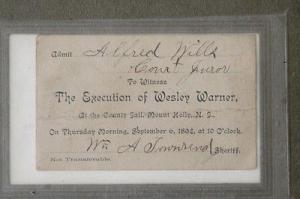 Admit Alfred Wills
Court Juror
To Witness
The Execution of Wesley Warner,
At the County Jail, Mount Holly, N. J.,
On Thursday Morning, September 6, 1894, at 10 O'clock.
Wm A Townsend Sheriff.
Not Transferable.